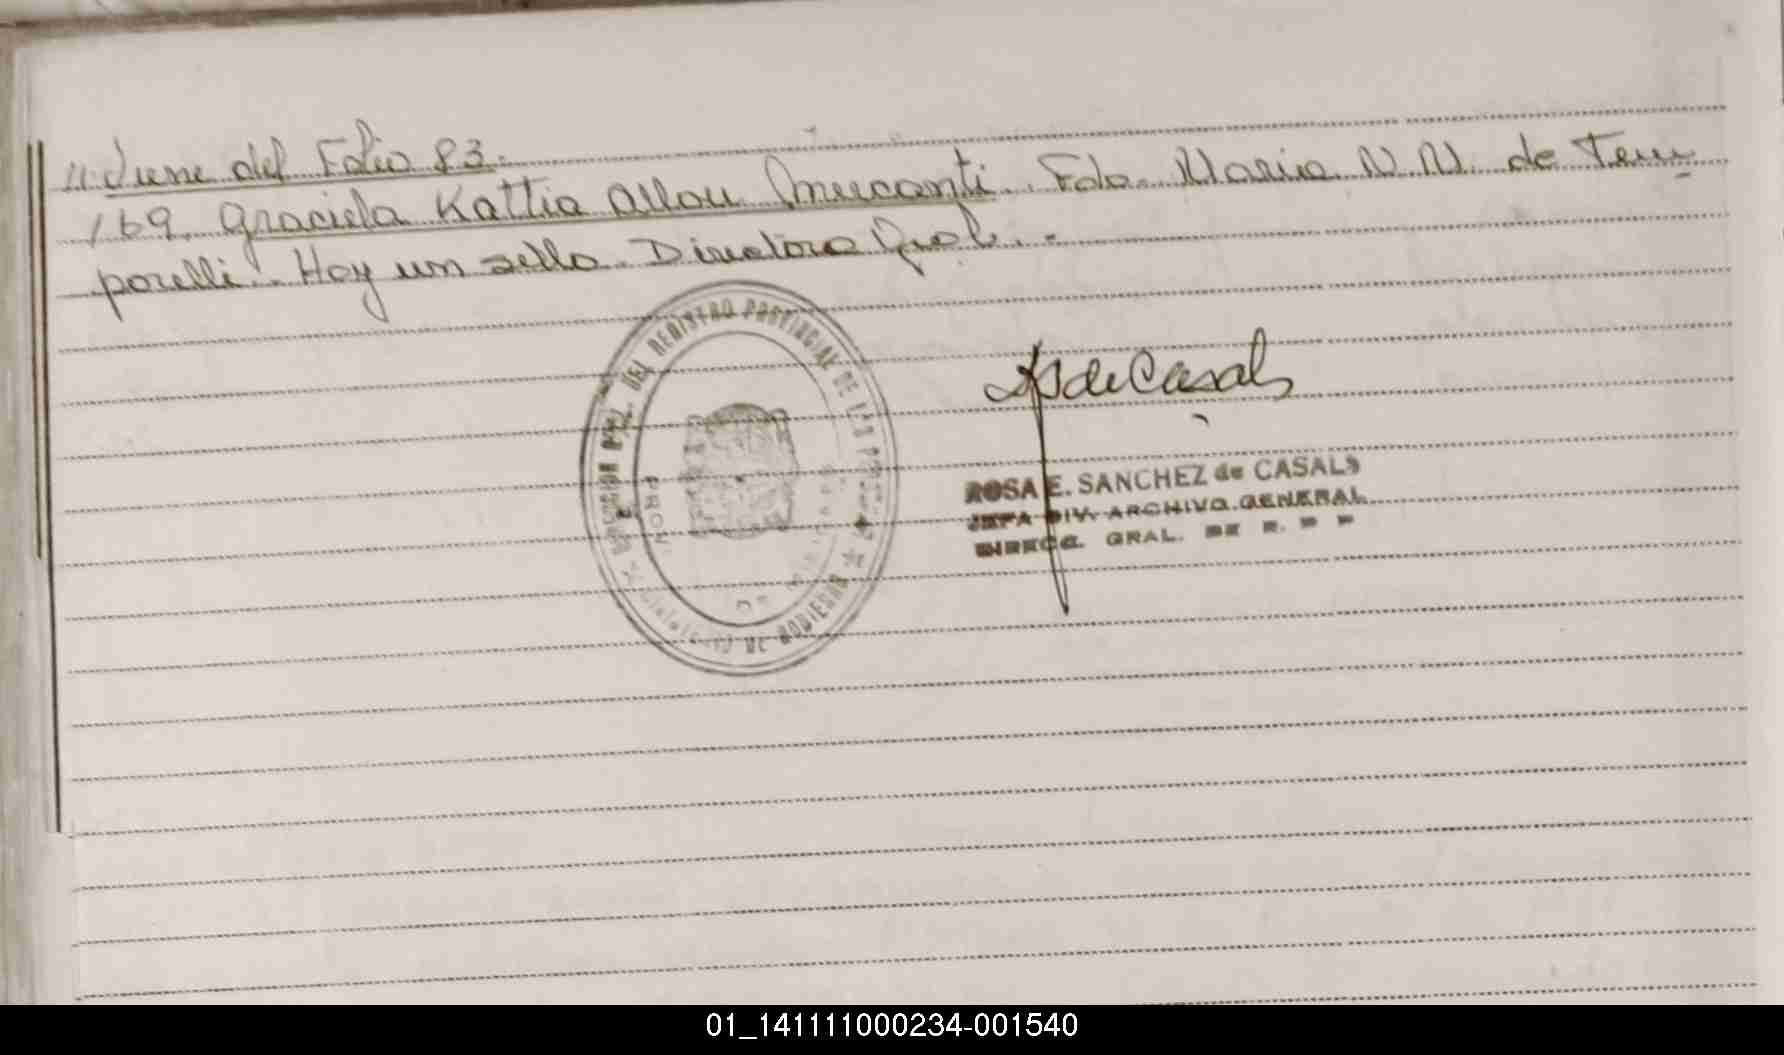 //Viene del Folio 83.
169, Graciela Kattia Allou Amucanti. Fdo. Maria N. N. de Tem
porelli. Hay un sello. Directora Gral.-
DEL REGISTRO PROVINCIAL DE LAS
PROV.
DE
GOBIERNO
de Casals
ROSA E. SANCHEZ de CASALS
JEFA DIV. ARCHIVO GENERAL
DIRECC. GRAL. DE R. D P
01_141111000234-001540